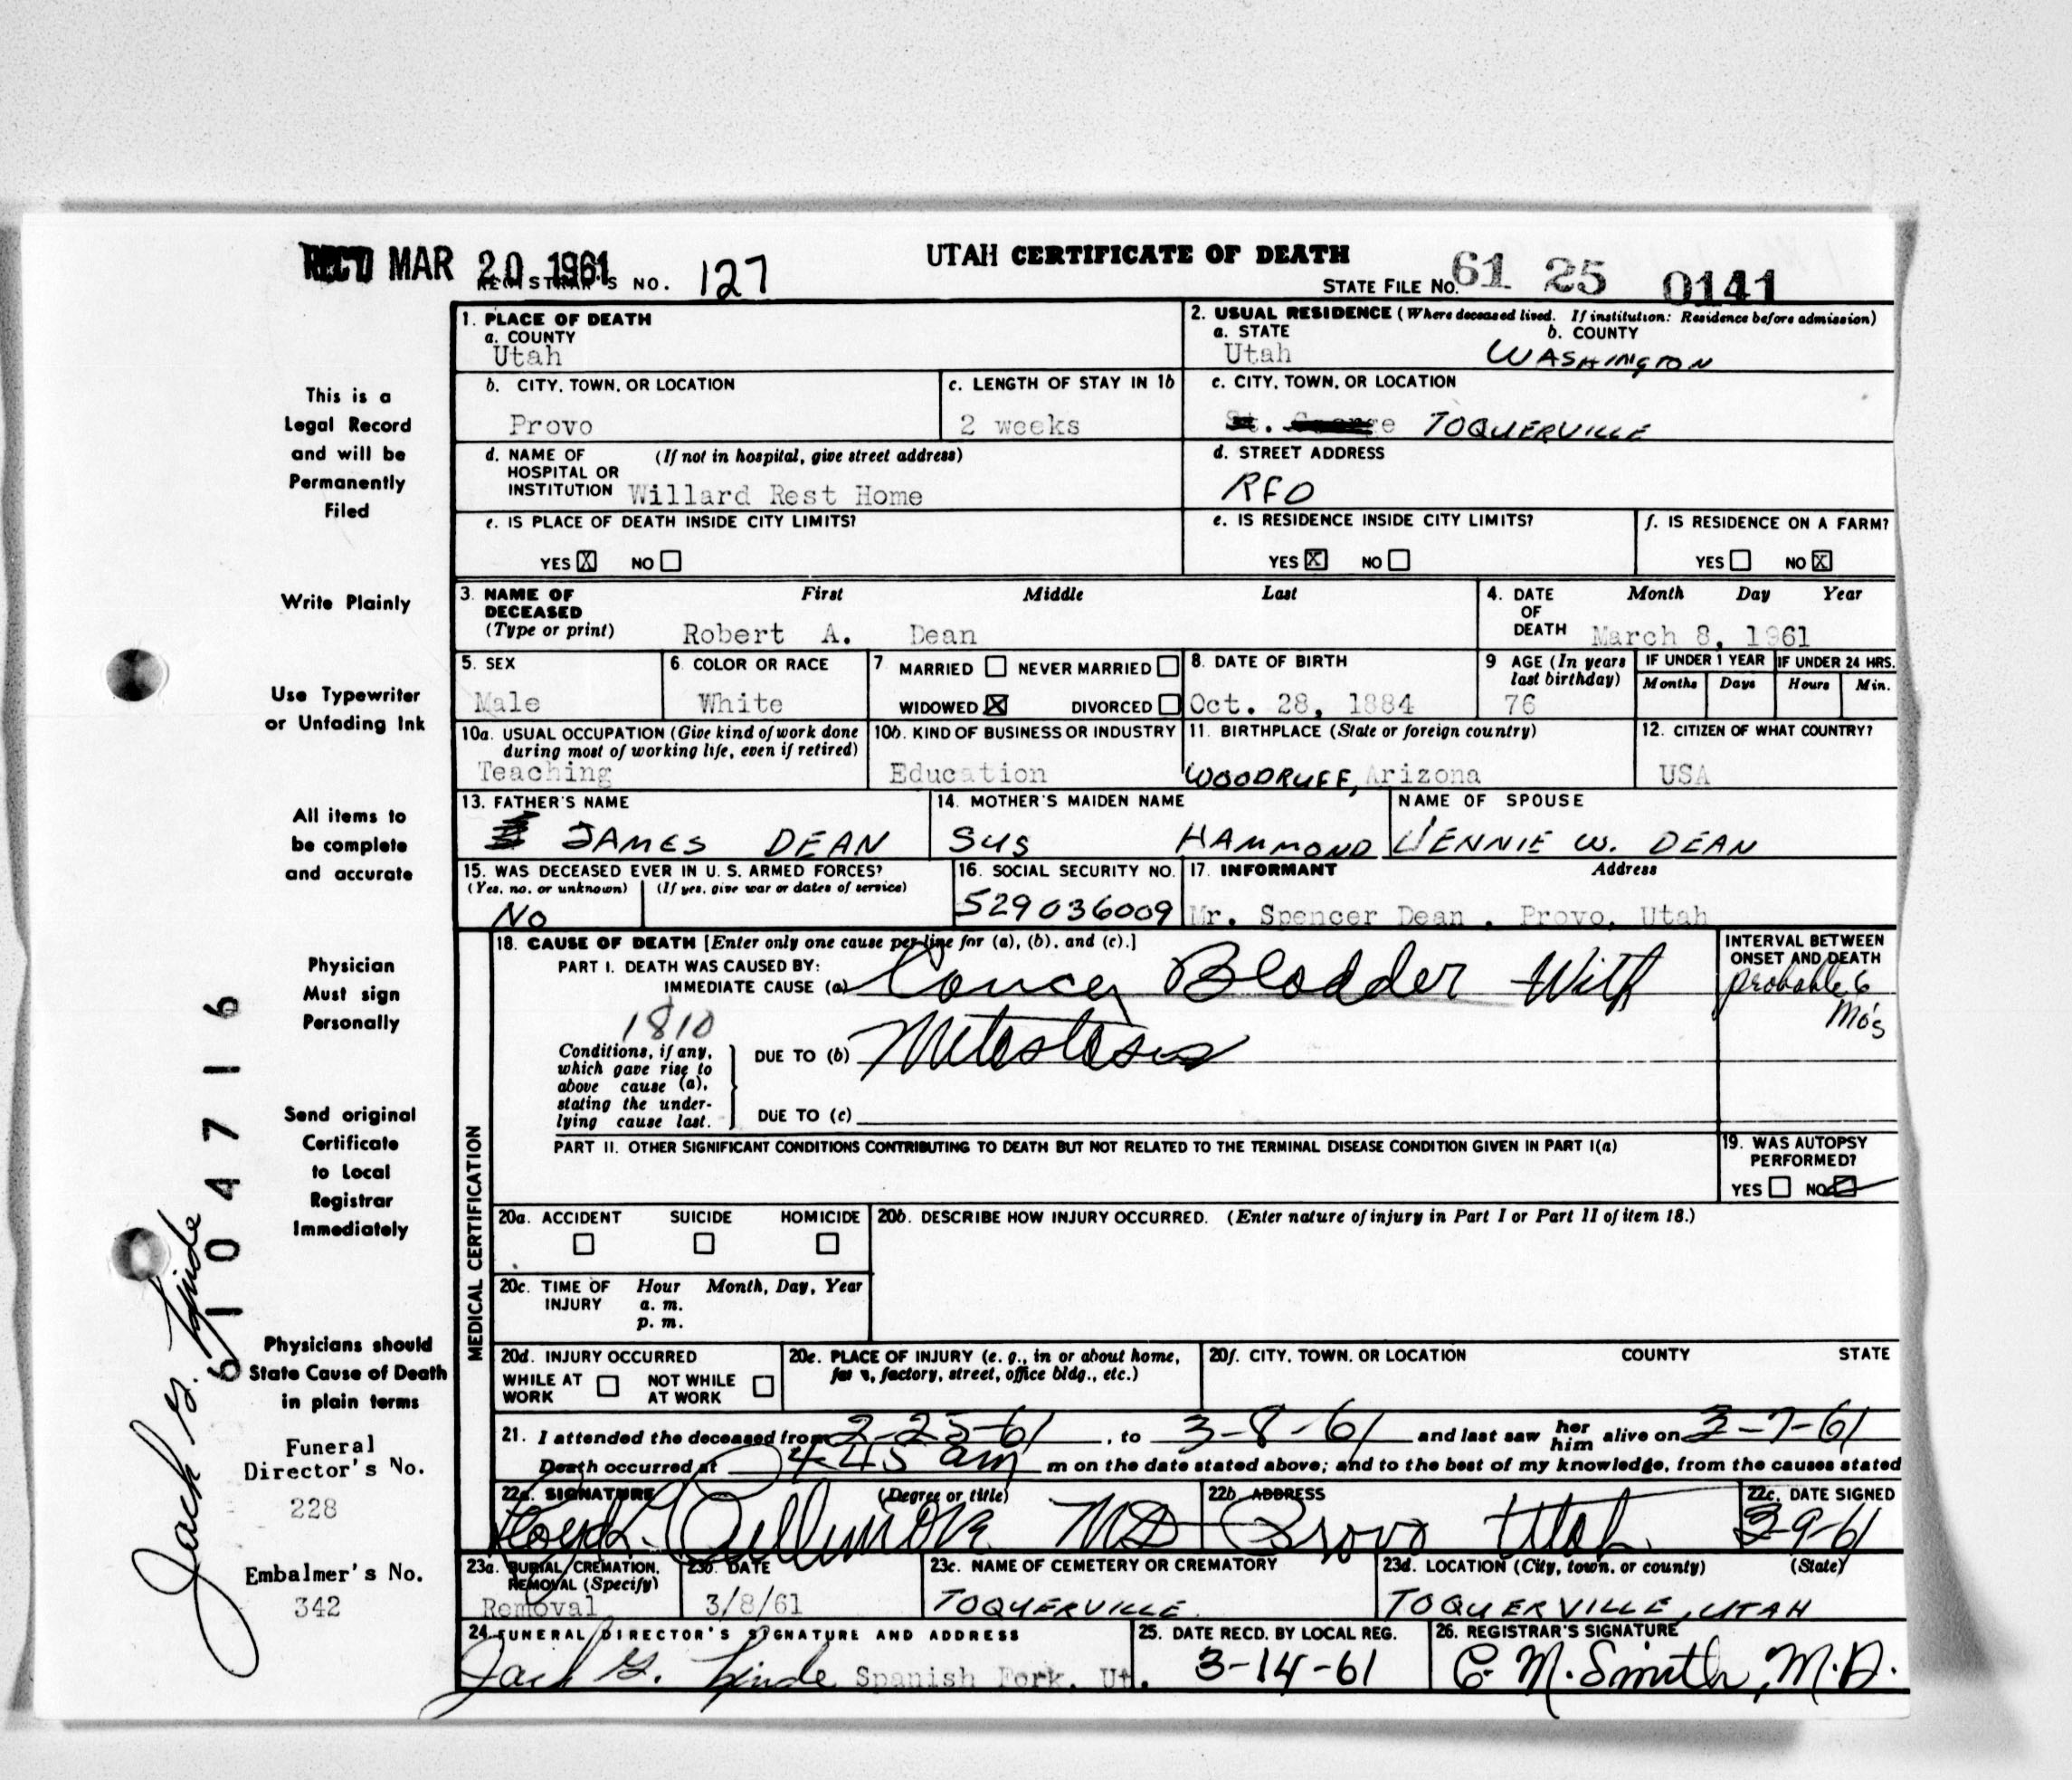 REC'D MAR 20 1961
UTAH CERTIFICATE OF DEATH
REGISTRAR'S NO. 127
STATE FILE NO. 61 25 0141
This is a
Legal Record
and will be
Permanently
Filed
Write Plainly
Use Typewriter
or Unfading Ink
All items to
be complete
and accurate
Physician
Must sign
Personally
Send original
Certificate
to Local
Registrar
Immediately
Physicians should
State Cause of Death
in plain terms
Funeral
Director's No.
228
Embalmer's No.
342
6104716
1. PLACE OF DEATH
a. COUNTY
Utah
2. USUAL RESIDENCE (Where deceased lived. If institution: Residence before admission)
a. STATE b. COUNTY
Utah WASHINGTON
b. CITY, TOWN, OR LOCATION
Provo
c. LENGTH OF STAY IN 1b
2 weeks
c. CITY, TOWN, OR LOCATION
St. George TOQUERVILLE
d. NAME OF (If not in hospital, give street address)
HOSPITAL OR
INSTITUTION Willard Rest Home
d. STREET ADDRESS
RFD
e. IS PLACE OF DEATH INSIDE CITY LIMITS?
YES X NO
e. IS RESIDENCE INSIDE CITY LIMITS?
YES X NO
f. IS RESIDENCE ON A FARM?
YES NO X
3. NAME OF First Middle Last
DECEASED
(Type or print) Robert A. Dean
4. DATE Month Day Year
OF
DEATH March 8, 1961
5. SEX
Male
6. COLOR OR RACE
White
7 MARRIED NEVER MARRIED
WIDOWED X DIVORCED
8. DATE OF BIRTH
Oct. 28, 1884
9 AGE (In years
last birthday)
76
IF UNDER 1 YEAR
Months Days
IF UNDER 24 HRS.
Hours Min.
10a. USUAL OCCUPATION (Give kind of work done
during most of working life, even if retired)
Teaching
10b. KIND OF BUSINESS OR INDUSTRY
Education
11. BIRTHPLACE (State or foreign country)
WOODRUFF, Arizona
12. CITIZEN OF WHAT COUNTRY?
USA
13. FATHER'S NAME
JAMES DEAN
14. MOTHER'S MAIDEN NAME
SUS HAMMOND
NAME OF SPOUSE
JENNIE W. DEAN
15. WAS DECEASED EVER IN U. S. ARMED FORCES?
(Yes, no, or unknown) (If yes, give war or dates of service)
NO
16. SOCIAL SECURITY NO.
529036009
17. INFORMANT Address
Mr. Spencer Dean . Provo, Utah
MEDICAL CERTIFICATION
18. CAUSE OF DEATH [Enter only one cause per line for (a), (b), and (c).]
PART I. DEATH WAS CAUSED BY:
IMMEDIATE CAUSE (a) Cancer Bladder With
1810
Conditions, if any,
which gave rise to
above cause (a),
stating the under-
lying cause last.
DUE TO (b) Metastasis
DUE TO (c)
INTERVAL BETWEEN
ONSET AND DEATH
probable 6
Mo's
PART II. OTHER SIGNIFICANT CONDITIONS CONTRIBUTING TO DEATH BUT NOT RELATED TO THE TERMINAL DISEASE CONDITION GIVEN IN PART I(a)
19. WAS AUTOPSY
PERFORMED?
YES NO
20a. ACCIDENT SUICIDE HOMICIDE
20b. DESCRIBE HOW INJURY OCCURRED. (Enter nature of injury in Part I or Part II of item 18.)
20c. TIME OF Hour Month, Day, Year
INJURY a. m.
p. m.
20d. INJURY OCCURRED
WHILE AT NOT WHILE
WORK AT WORK
20e. PLACE OF INJURY (e. g., in or about home,
factory, street, office bldg., etc.)
20f. CITY, TOWN, OR LOCATION COUNTY STATE
21. I attended the deceased from 2-25-61, to 3-8-61 and last saw her him alive on 3-7-61
Death occurred at 4:45 am m on the date stated above; and to the best of my knowledge, from the causes stated
22a. SIGNATURE (Degree or title)
Lloyd L. Cullimore MD
22b. ADDRESS
Provo Utah
22c. DATE SIGNED
3-9-61
23a. BURIAL, CREMATION,
REMOVAL (Specify)
Removal
23b. DATE
3/8/61
23c. NAME OF CEMETERY OR CREMATORY
TOQUERVILLE
23d. LOCATION (City, town, or county) (State)
TOQUERVILLE, UTAH
24. FUNERAL DIRECTOR'S SIGNATURE AND ADDRESS
Jack G. Spanish Fork, Ut.
25. DATE RECD. BY LOCAL REG.
3-14-61
26. REGISTRAR'S SIGNATURE
C. M. Smith, M.D.